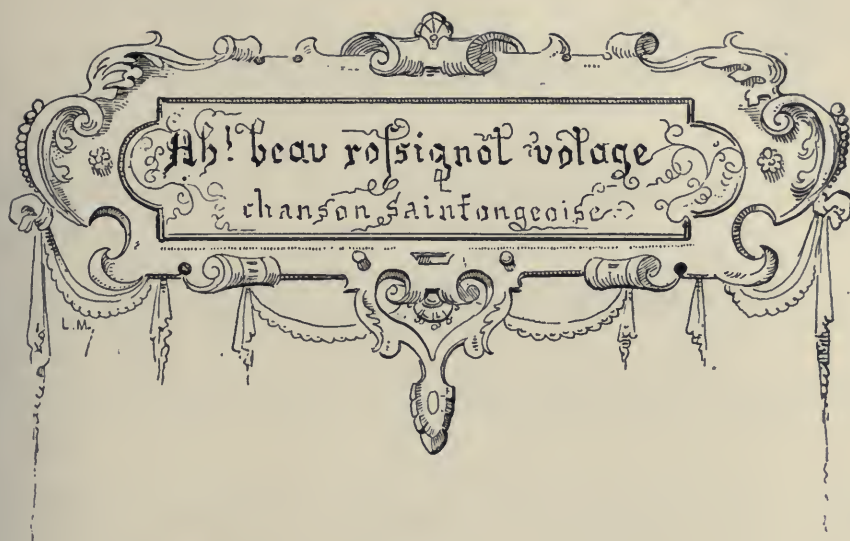 Ah! beau roſsignol volage
chanson saintongeoise
L.M.